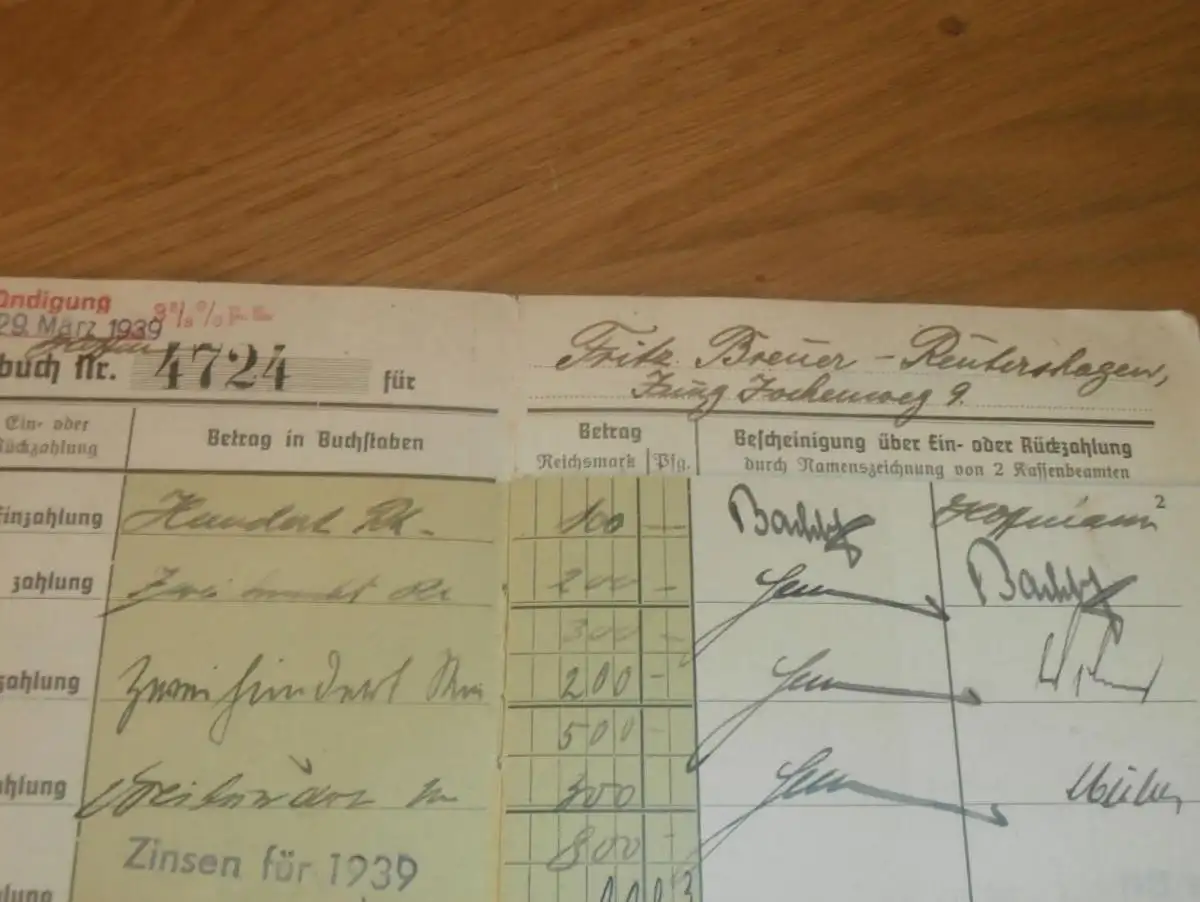 ündigung 3⅜% p.a.
29. März 1939
buch Nr. 4724 für
Fritz Breuer – Reutershagen,
Jung Jochenweg 9.
Ein- oder Rückzahlung
Betrag in Buchstaben
Betrag
Reichsmark Pfg.
Bescheinigung über Ein- oder Rückzahlung
durch Namenszeichnung von 2 Kassenbeamten
2
Einzahlung Hundert RM – 100 —
zahlung Zwei hundert RM 200 –
300 –
zahlung Zweihundert 200 –
500 –
ahlung Dreihundert 300
800 –
Zinsen für 1939
ahlung